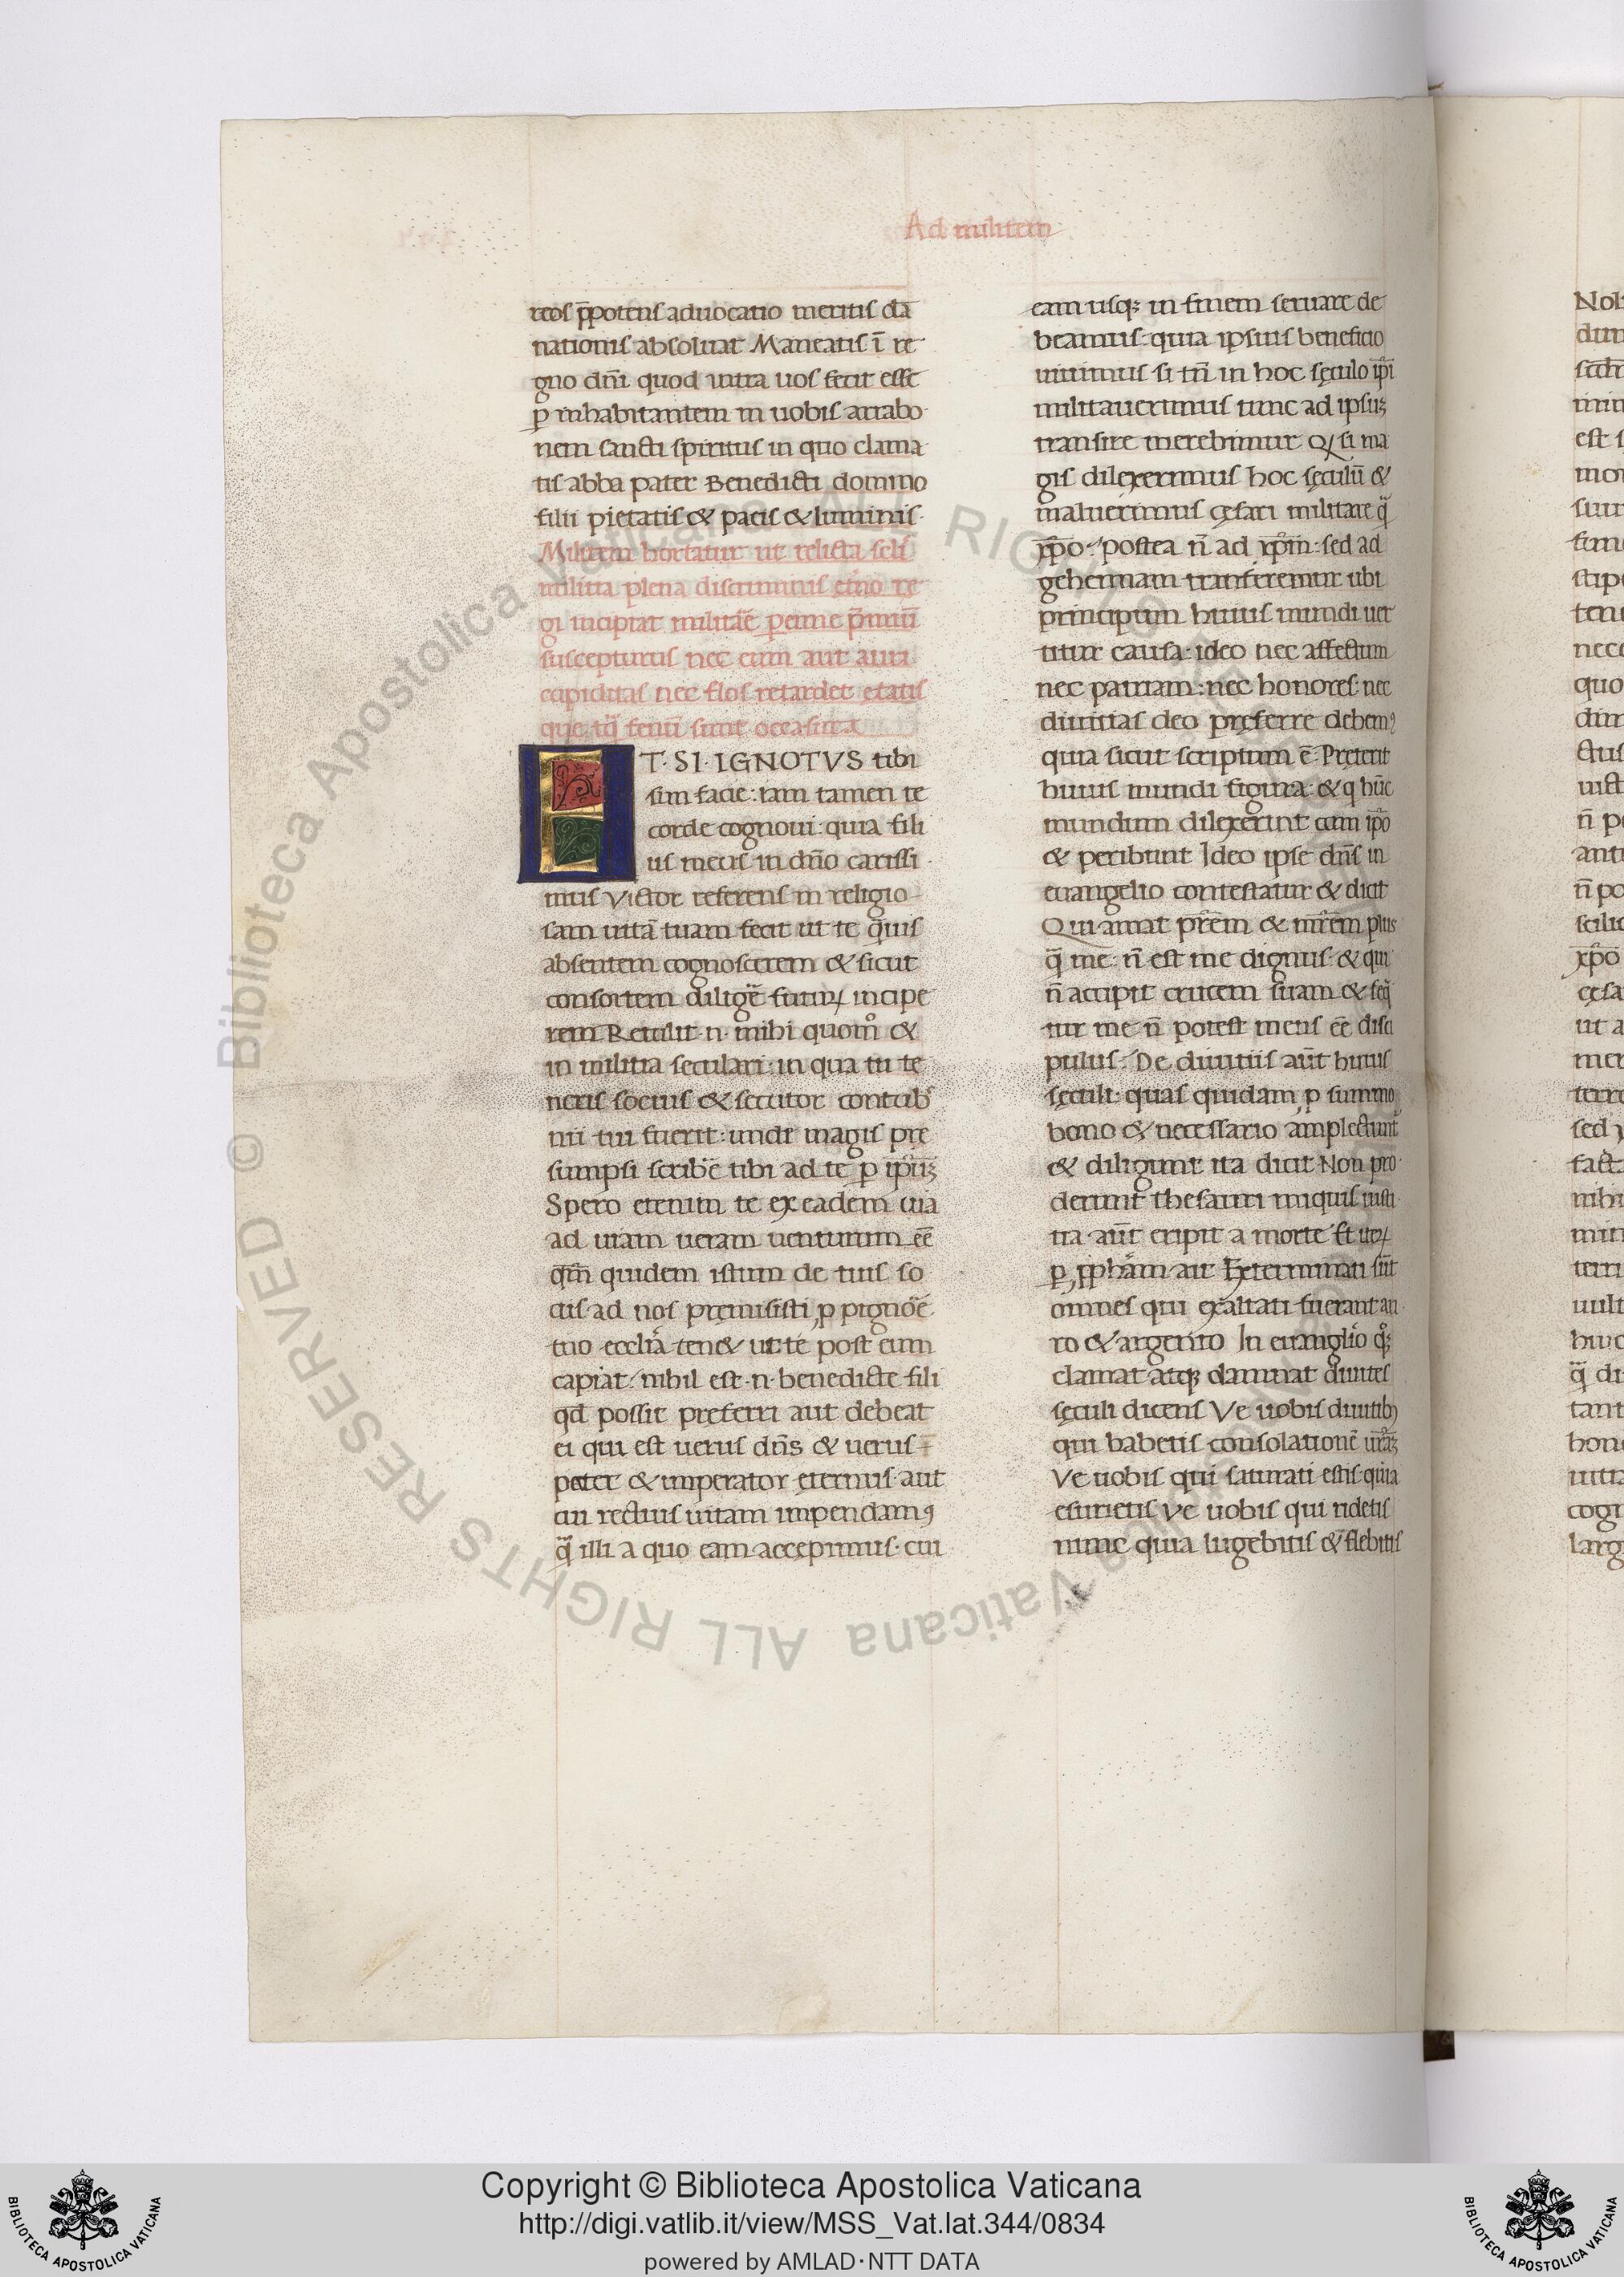 Ad militem
reos p̄potens aduocatio meritis dā
nationis absoluat Maneatis ī re
gno dn̄i quod intra uos fecit esse
ꝑ inhabitantem in uobis arrabo
nem sancti spiritus in quo clama
tis abba pater Benedicti domino
filii pietatis & pacis & luminis
Militem hortatur ut relicta scl̄i
militia plena discriminis et̄no re
gi incipiat militar̄e ꝑenne p̄miū
suscepturus nec eum aut auri
cupiditas nec flos retardet etatis
que tq̄ fenū sunt occasura
ET·SI·IGNOTVS tibi
sim facie: iam tamen te
corde cognoui: quia fili
us meus in dn̄o carissi
mus Victor referens in religio
sam uitā tuam fecit ut te quis
absentem cognoscerem & sicut
consortem diliger̄e futurꝝ incipe
rem Retulit ·n· mihi quom̊ &
in militia seculari: in qua tu te
neris socius & secutor contub̓
nii tui fuerit: unde magis pre
sumpsi scriber̄e tibi ad te ꝑ ip̄sūꝫ
Spero etenim te ex eadem uia
ad uiam ueram uenturum eē
qm̄ quidem istum de tuis so
ciis ad nos premisisti ꝓ pignōe
tuo eccl̄ia tene& ut te post eum
capiat: nihil est ·n· benedicte fili
qd̄ possit preferri aut debeat
ei qui est uerus dn̄s & uerus
pater & imperator eternus aut
cui rectius uitam impendamꝰ
q̄ illi a quo eam accepimus: cui
eam usqꝫ in finem seruare de
beamus: quia ipsius beneficio
uiuimus si tn̄ in hoc sęculo ip̄i
militauerimus tunc ad ipsuꝫ
transire merebimur Qꝫ si ma
gis dilexerimus hoc sęculū &
maluerimus cęsari militare q̄
xp̄o: postea n̄ ad xp̄m: sed ad
gehennam transferemur ubi
principum huius mundi uer
titur causa: ideo nec affectum
nec patriam: nec honores: nec
diuitias deo pręferre debemꝰ
quia sicut scriptum ē: Pręterit
huius mundi figura: & q hūc
mundum dilexerint cum ip̄o
& peribunt Ideo ipse dn̄s in
euangelio contestatur & dicit
Qui amat prēm & mrēm plus
q̄ me: n̄ est me dignus: & qui
n̄ accipit crucem suam & seq̄
tur me n̄ potest meus eē disci
pulus: De diuitiis aūt huius
sęculi: quas quidam ꝓ summo
bono & necessario amplectunt̄
& diligunt ita dicit Non pro
derunt thesauri iniquis iusti
tia aūt eripit a morte Et iterꝝ
ꝑ ꝓpham ait Exterminati sūt
omnes qui exaltati fuerant au
ro & argento In euanglio qͦꝫ
clamat atqꝫ damnat diuites
sęculi dicens Ve uobis diuitibꝫ
qui habetis consolationē urāꝫ
Ve uobis qui saturati estis: quia
esurietis Ve uobis qui ridetis
nunc quia lugebitis & flebitis
© Biblioteca Apostolica Vaticana ALL RIGHTS RESERVED
Copyright © Biblioteca Apostolica Vaticana
http://digi.vatlib.it/view/MSS_Vat.lat.344/0834
powered by AMLAD·NTT DATA
BIBLIOTECA APOSTOLICA VATICANA
BIBLIOTECA APOSTOLICA VATICANA